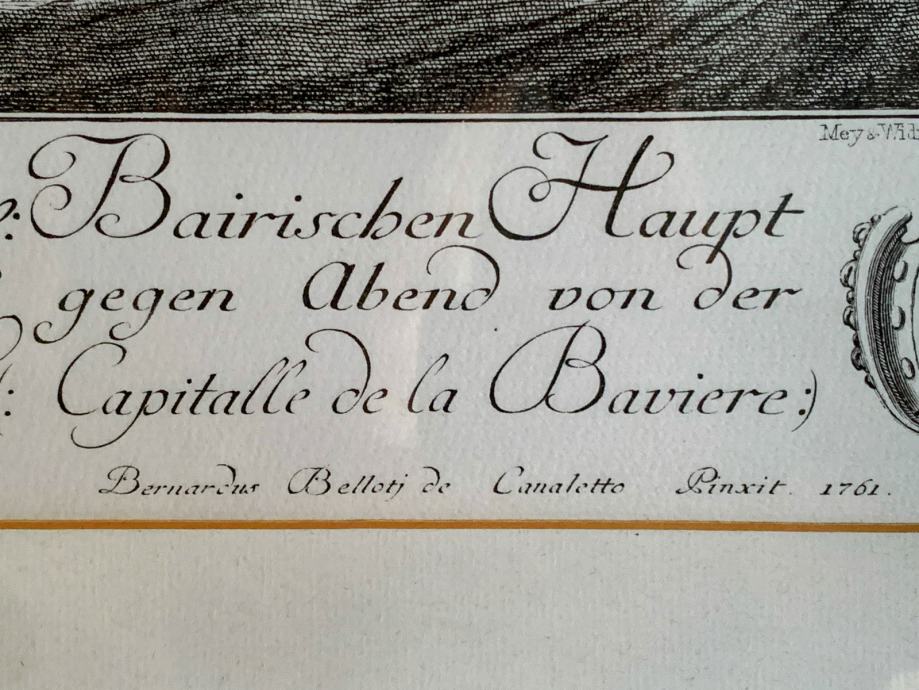 Mey & Wid
Bairischen Haupt
gegen Abend von der
(: Capitalle de la Baviere:)
Bernardus Bellotj de Canaletto Pinxit. 1761.